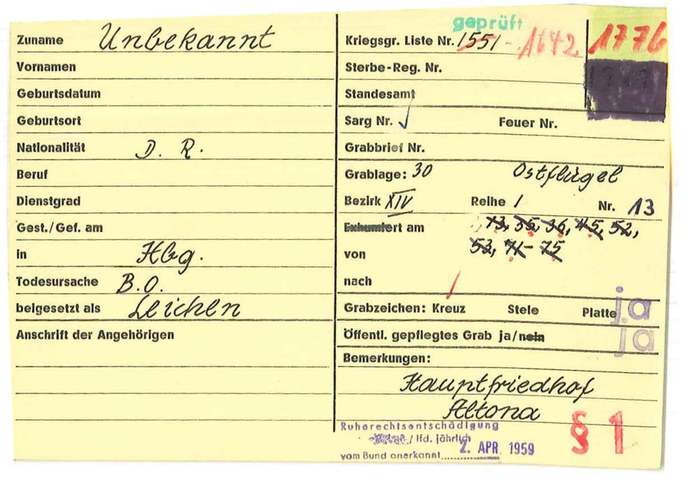 geprüft
Zuname Unbekannt
Vornamen
Geburtsdatum
Geburtsort
Nationalität D. R.
Beruf
Dienstgrad
Gest./Gef. am
in Hbg.
Todesursache B.O.
beigesetzt als Leichen
Anschrift der Angehörigen
Kriegsgr. Liste Nr. 1551 - 1642 1776
Sterbe-Reg. Nr.
Standesamt
Sarg Nr. Feuer Nr.
Grabbrief Nr.
Grablage: 30 Ostflügel
Bezirk XIV Reihe 1 Nr. 13
Exhumiert am 13, 35, 36, 45, 52,
von 53, 71 - 75
nach
Grabzeichen: Kreuz Stele Platte ja
Öffentl. gepflegtes Grab ja/nein ja
Bemerkungen:
Hauptfriedhof
Altona
§ 1
Ruherechtsentschädigung
/ lfd. jährlich
vom Bund anerkannt 2. APR. 1959